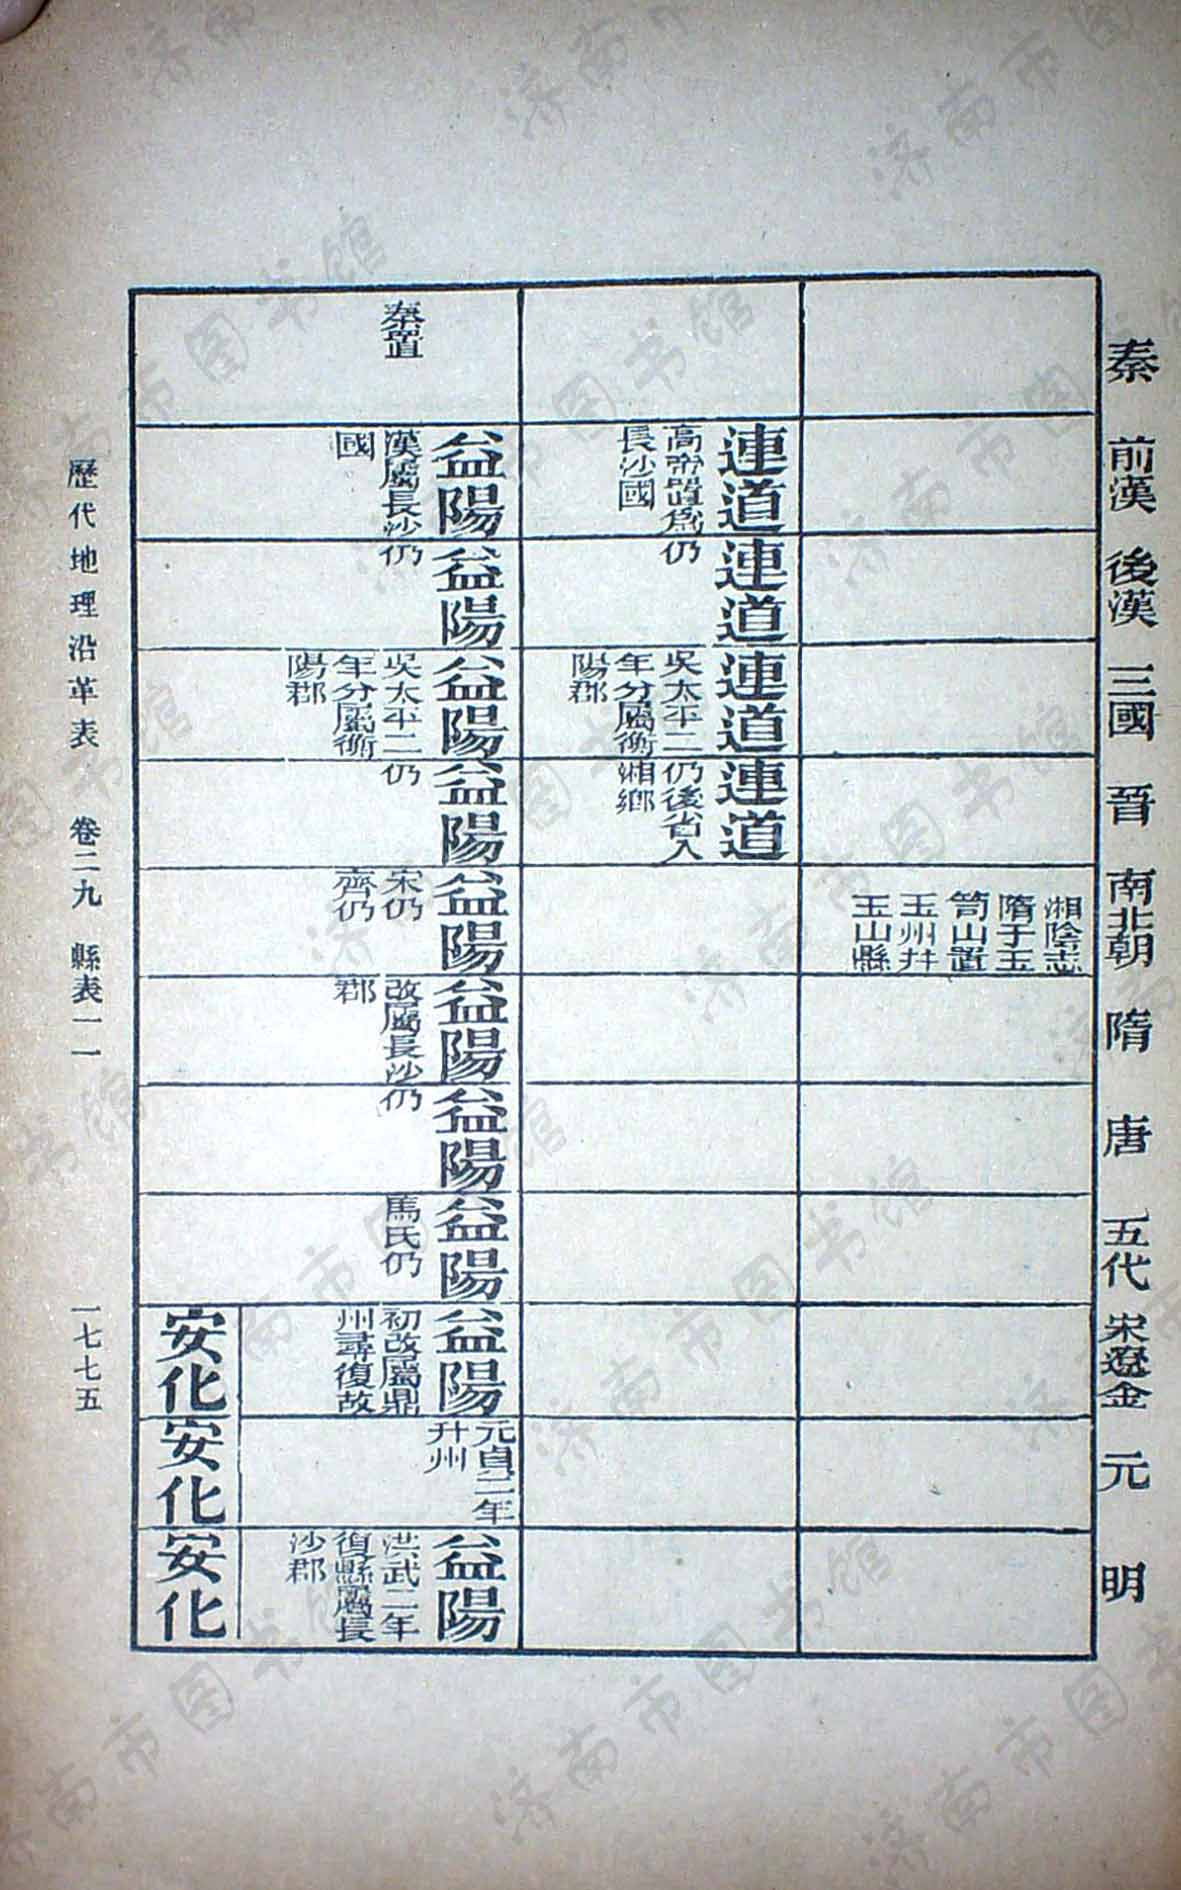 秦
前漢
後漢
三國
晉
南北朝
隋
唐
五代
宋遼金
元
明
湘陰志
隋于玉
笥山置
玉州并
玉山縣
連道
高帝置爲
長沙國
連道
仍
連道
吳太平二
年分屬衡
陽郡
連道
仍後省入
湘鄉
秦置
益陽
漢屬長沙
國
益陽
仍
益陽
吳太平二
年分屬衡
陽郡
益陽
仍
益陽
宋仍
齊仍
益陽
改屬長沙
郡
益陽
仍
益陽
馬氏仍
益陽
初改屬鼎
州尋復故
元貞二年
升州
益陽
洪武二年
復縣屬長
沙郡
安化
安化
安化
歷代地理沿革表 卷二九 縣表一一
一七七五
济南市图书馆